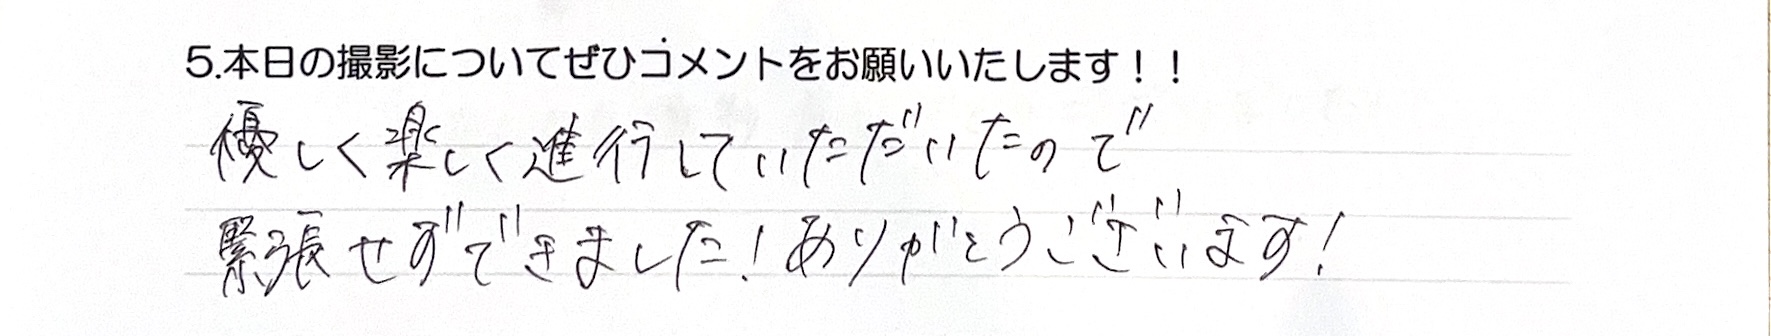 5.本日の撮影についてぜひコメントをお願いいたします！！
優しく楽しく進行していただいたので
緊張せずできました！ありがとうございます！